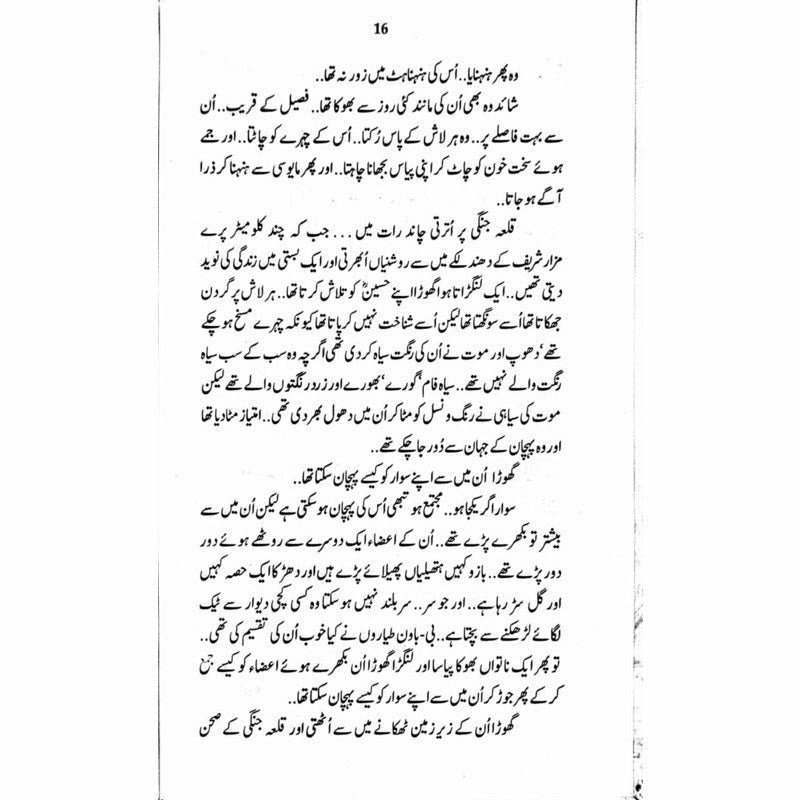 16
وہ پھر ہنہنایا.. اُس کی ہنہناہٹ میں زور نہ تھا..
شائد وہ بھی اُن کی مانند کئی روز سے بھوکا تھا.. فصیل کے قریب.. اُن
سے بہت فاصلے پر.. وہ ہر لاش کے پاس رُکتا.. اُس کے چہرے کو چاٹتا.. اور جمے
ہوئے سخت خون کو چاٹ کر اپنی پیاس بجھانا چاہتا.. اور پھر مایوسی سے ہنہنا کر ذرا
آگے ہو جاتا..
قلعہ جنگی پر اُترتی چاند رات میں ... جب کہ چند کلو میٹر پرے
مزار شریف کے دھندلکے میں سے روشنیاں اُبھرتی اور ایک بستی میں زندگی کی نوید
دیتی تھیں.. ایک لنگڑاتا ہوا گھوڑا اپنے حسینؓ کو تلاش کرتا تھا.. ہر لاش پر گردن
جھکاتا تھا اُسے سونگھتا تھا لیکن اُسے شناخت نہیں کر پاتا تھا کیونکہ چہرے مسخ ہو چکے
تھے‘ دھوپ اور موت نے اُن کی رنگت سیاہ کر دی تھی اگرچہ وہ سب کے سب سیاہ
رنگت والے نہیں تھے.. سیاہ فام‘ گورے‘ بھورے اور زرد رنگتوں والے تھے لیکن
موت کی سیاہی نے رنگ و نسل کو مٹا کر اُن میں دھول بھر دی تھی.. امتیاز مٹا دیا تھا
اور وہ پہچان کے جہان سے دُور جا چکے تھے..
گھوڑا اُن میں سے اپنے سوار کو کیسے پہچان سکتا تھا..
سوار اگر یکجا ہو.. مجتمع ہو تبھی اُس کی پہچان ہو سکتی ہے لیکن اُن میں سے
بیشتر تو بکھرے پڑے تھے.. اُن کے اعضاء ایک دوسرے سے روٹھے ہوئے دور
دور پڑے تھے.. بازو کہیں ہتھیلیاں پھیلائے پڑے ہیں اور دھڑ کا ایک حصہ کہیں
اور گل سڑ رہا ہے.. اور جو سر.. سر بلند نہیں ہو سکتا وہ کسی کچی دیوار سے ٹیک
لگائے لڑھکنے سے بچتا ہے.. بی-باون طیاروں نے کیا خوب اُن کی تقسیم کی تھی..
تو پھر ایک ناتواں بھوکا پیاسا اور لنگڑا گھوڑا اُن بکھرے ہوئے اعضاء کو کیسے جمع
کر کے پھر جوڑ کر اُن میں سے اپنے سوار کو کیسے پہچان سکتا تھا..
گھوڑا اُن کے زیر زمین ٹھکانے میں سے اُٹھتی اور قلعہ جنگی کے صحن